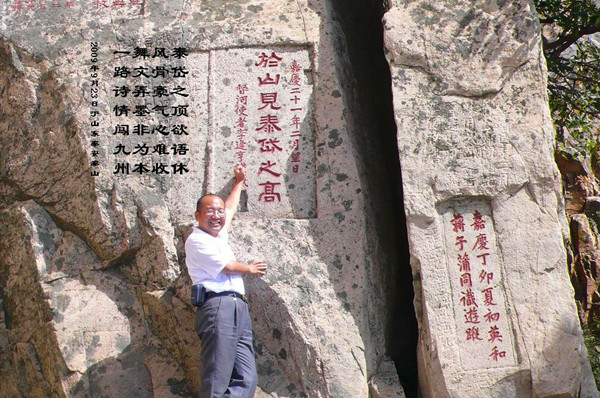 嘉慶丁卯夏初英和
蔣予蒲同識遊蹤
嘉慶二十一年二月望日
於山見泰岱之高
督河使者
泰岱之顶欲语休
风骨豪气心难收
舞文弄墨非为本
一路诗情闯九州
2009年9月23日于山东泰安泰山